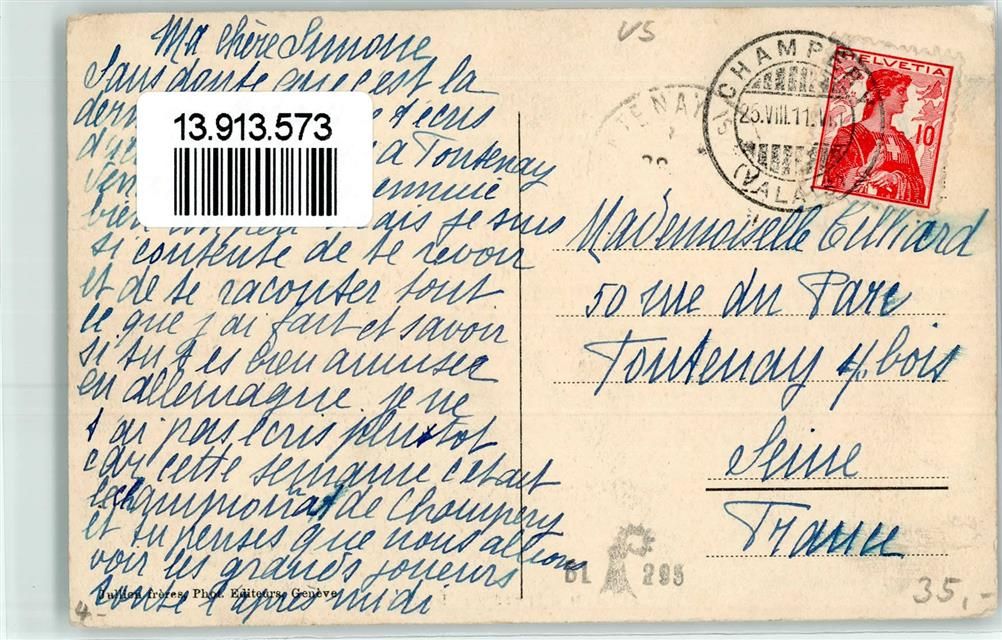 Ma chère Simone
Sans doute que c'est la
dern e t'écris
d'ic a Fontenay
ennuie
bien mais je suis
si contente de te revoir
et de te raconter tout
ce que j'ai fait et savoir
si tu t'es bien amusée
en allemagne. je ne
t'ai pas écris plustot
car cette semaine c'etait
le championnat de Champery
et tu penses que nous allions
voir les grands joueurs
toute l'après midi
Jullien frères, Phot. Editeurs, Genève
4-
13.913.573
VS
TENAY
CHAMPERY
25.VIII.11
(VALAIS)
HELVETIA
10
Mademoiselle Cilliard
50 rue du Parc
Fontenay s/ bois
Seine
France
BL 295
35,-